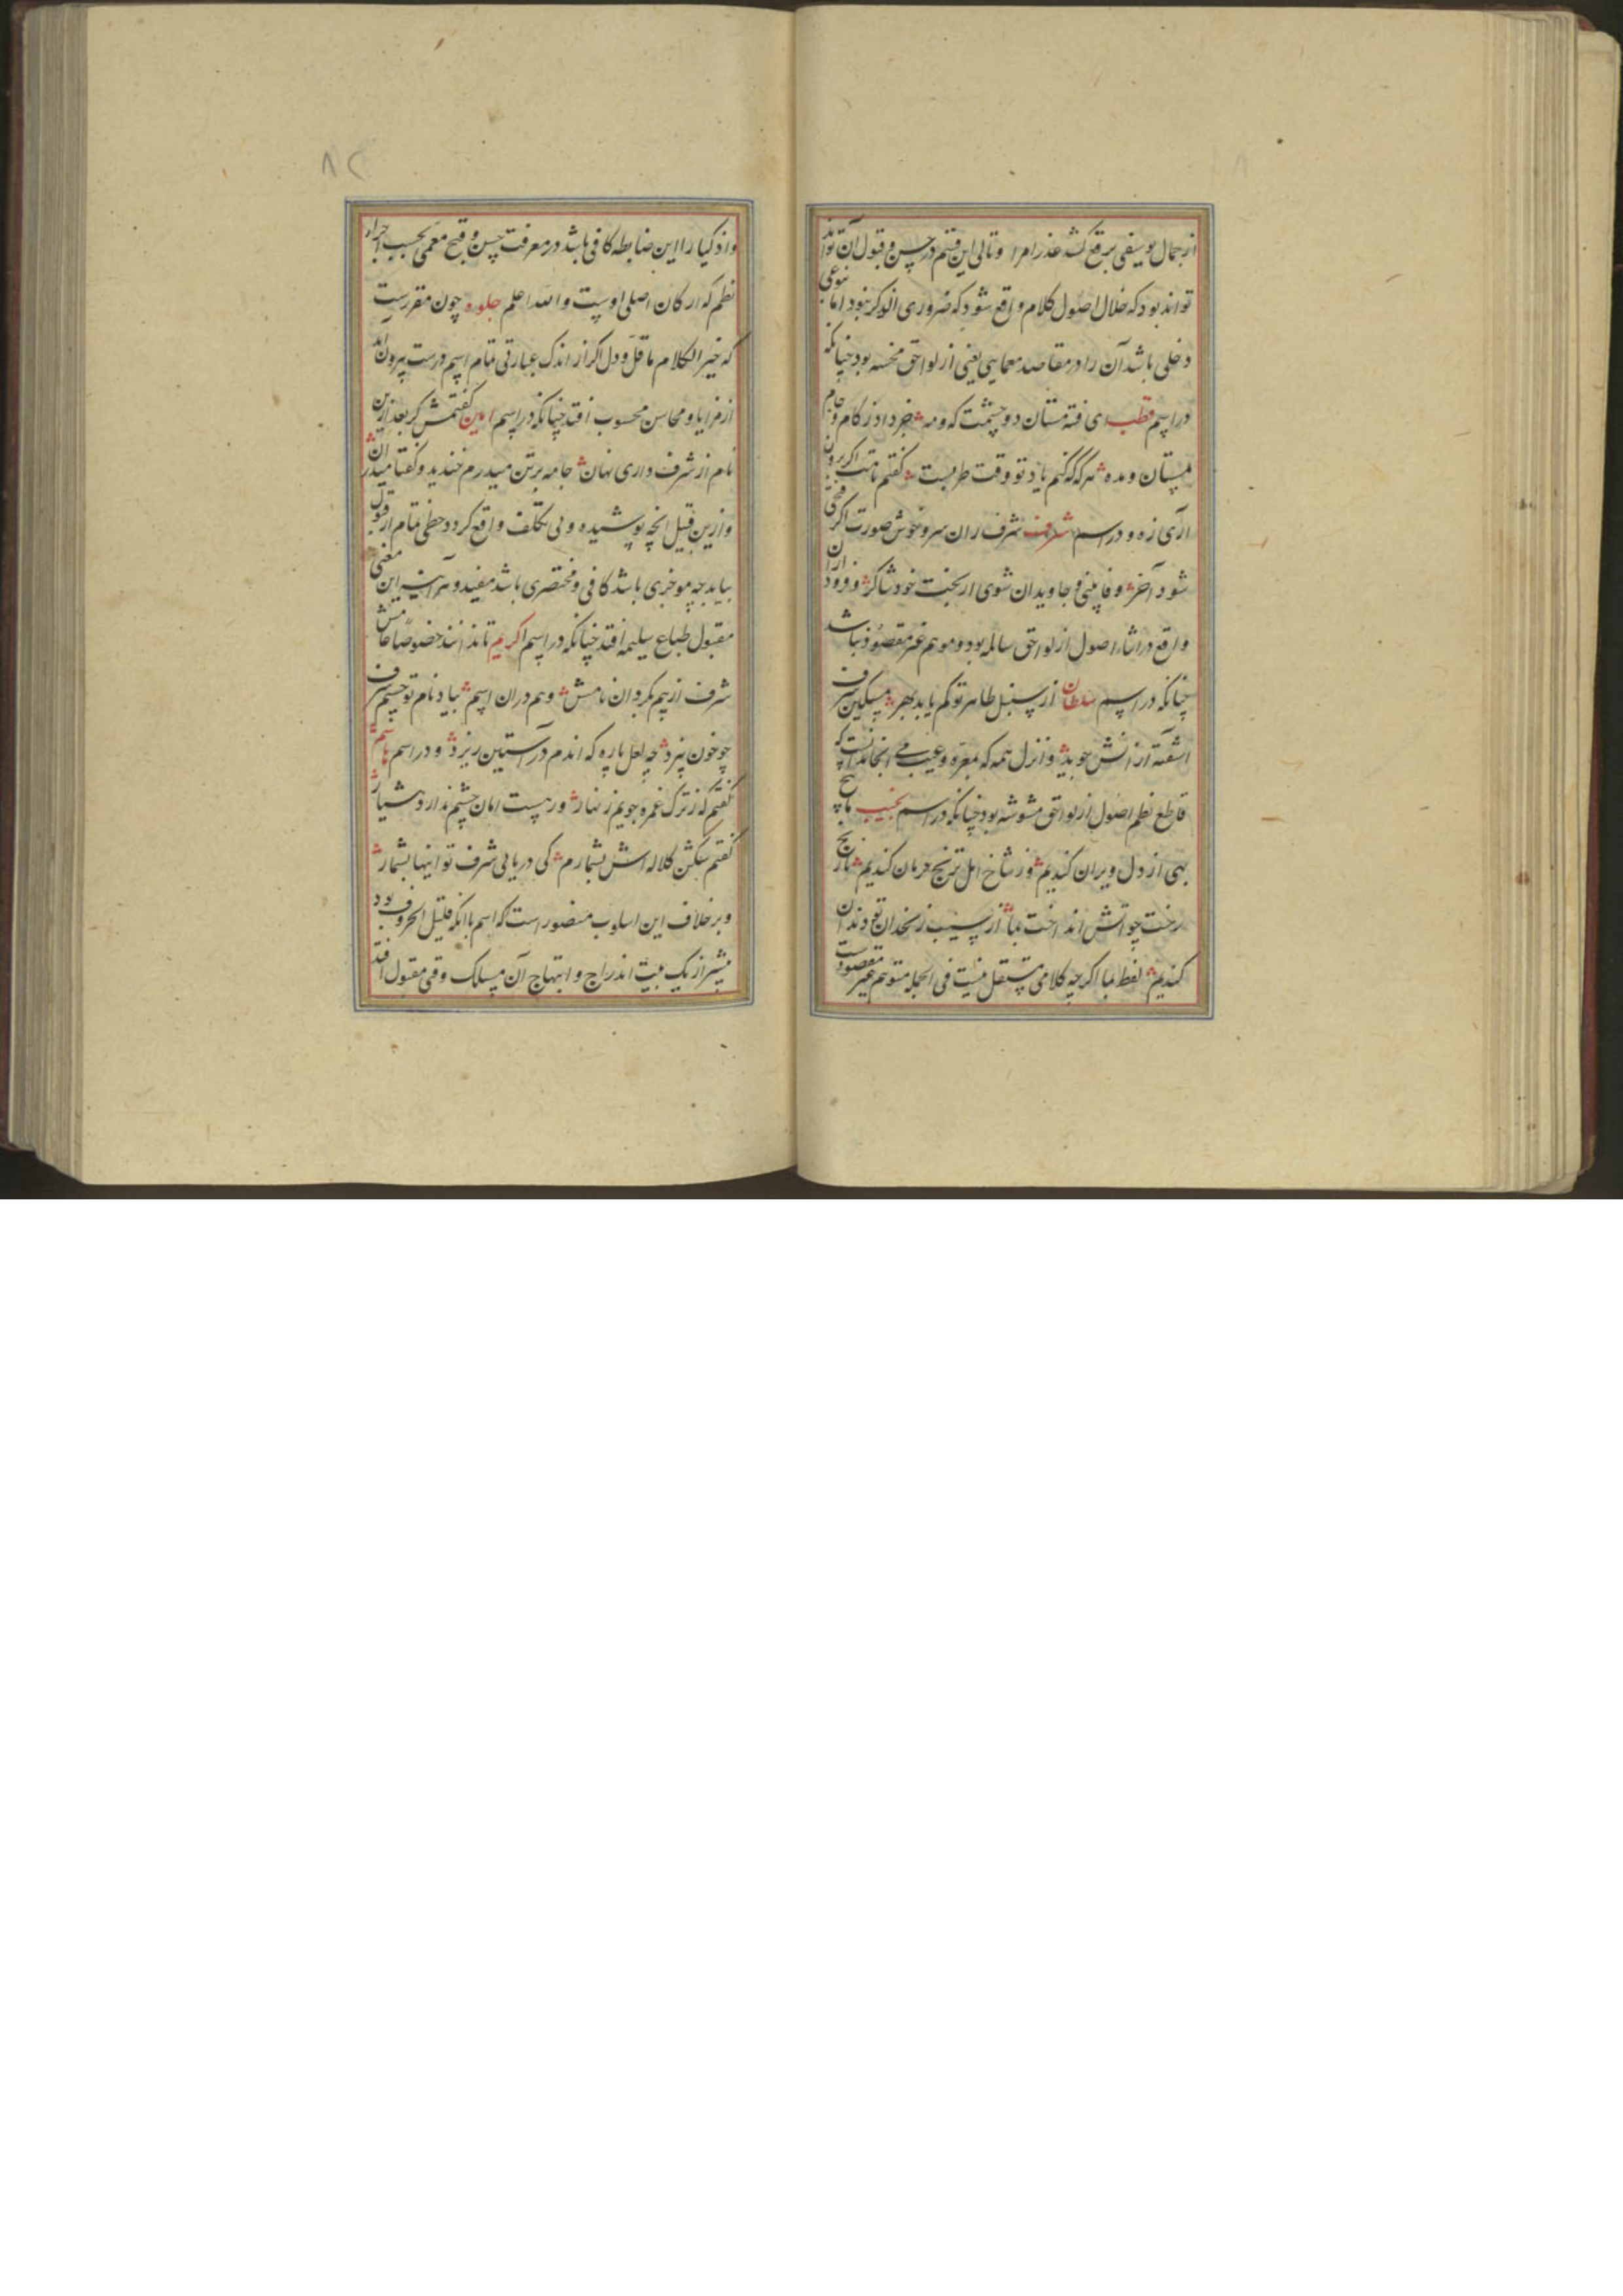 از جمال یوسفی برقع کشد عذرامرا و تالی این قسم در حسن و قبول آن تواند
تواند بود که خلال اصول کلام واقع شود که ضروری الذکر نبود اما نوعی
دخلی باشد آن را در مقاصد معمایی یعنی از لواحق محسنه بود چنانکه
در اسم قطب ای فتنه مستان دو چشمت که و مه خبر داد ز کام و جام
مستان و مده هرگه که کنم یاد تو وقت طربست گفتم نامت اگر برون
آری زه و در اسم شرف شرف ار ان سرو خوش صورت اگر
شود آخر وفا بینی و جاویدان شوی از بخت خود شاکر و ورود
واقع در اثناء اصول از لواحق سالمه بود و موهم غیر مقصود نباشد
چنانکه در اسم سلطان از سنبل طاهر تو کم یابد بهر مسکین شرف
آشفته از آنش جوید و انزل همه که معره و عیب می انجامد آنست که
قاطع نظم اصول از لواحق مشوشه بود چنانکه در اسم نجیب ما بیخ
بهی از دل ویران کندیم وز شاخ امل ترنج حرمان کندیم نارنج
رخت چو آتش انداخت بما از سیب زنخدان تو دندان
کندیم لفظ بما اگر چه کلامی مستقل نیست فی الجمله متوهم غیر مقصودست
۸۲
و اذکیا را این ضابطه کافی باشد در معرفت حسن و قبح معمی بحسب اجزاء
نظم که ارکان اصلی اوست والله اعلم جلوه چون مقررست
که خیر الکلام ما قل و دل اگر از اندک عبارتی تمام اسم درست بیرون آید
از مزایا و محاسن محسوب افتد چنانکه در اسم امین گفتمش کر بعد ازین
نام از شرف داری نهان جامه بر تن میدرم خندید و گفتا میدر آن
و ازین قبیل آنچه پوشیده و بی تکلف واقع گردد حظی تمام از قبول
بیابد چه موجزی باشد کافی و مختصری باشد مفید و هر آینه این معنی
مقبول طباع سلیمه افتد چنانکه در اسم اکریم تا ندانند خصوصا عامش
شرف از بیم بگردان نامش و هم در ان اسم بیاد نام تو چشم شرف
چو خون بیزد چه لعل پاره که اندم در آستین ریزد و در اسم هاشم
گفتم که ز ترک غمزه جویم زنهار ورهیست امان چشم ندارد هشیار
گفتم شکن کلاله اش بشمارم کی دریابی شرف تو اینها بشمار
و بر خلاف این اسلوب متصور است که اسم با آنکه قلیل الحروف بود
بیشتر از یک بیت اندراج و ابتهاج آن مسلک وقتی مقبول افتد